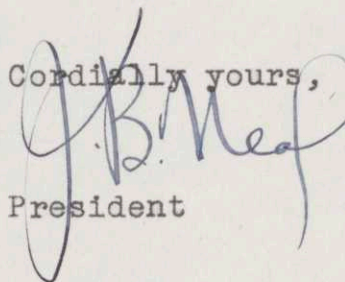 Cordially yours,
J. B. Neal
President